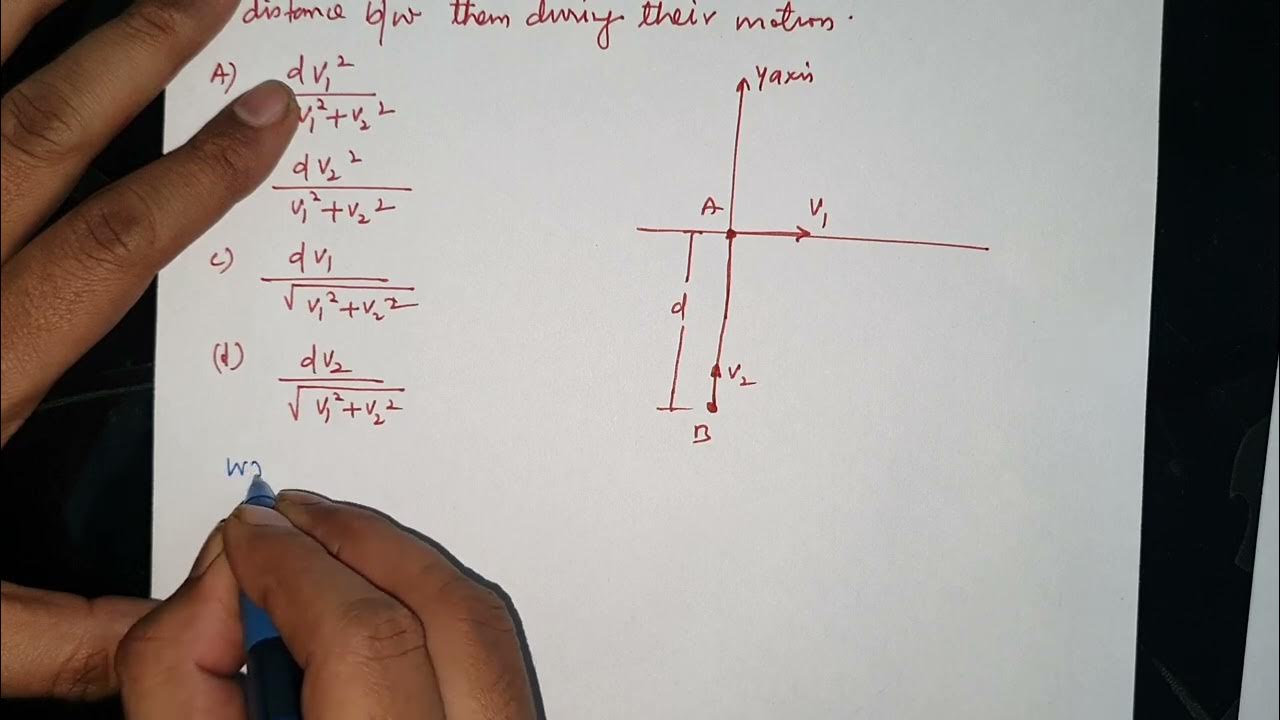 distance b/w them during their motion.
A) dV₁²
V₁²+V₂²
dV₂²
V₁²+V₂²
c) dV₁
√V₁²+V₂²
(d) dV₂
√V₁²+V₂²
Y axis
A V₁
d
V₂
B